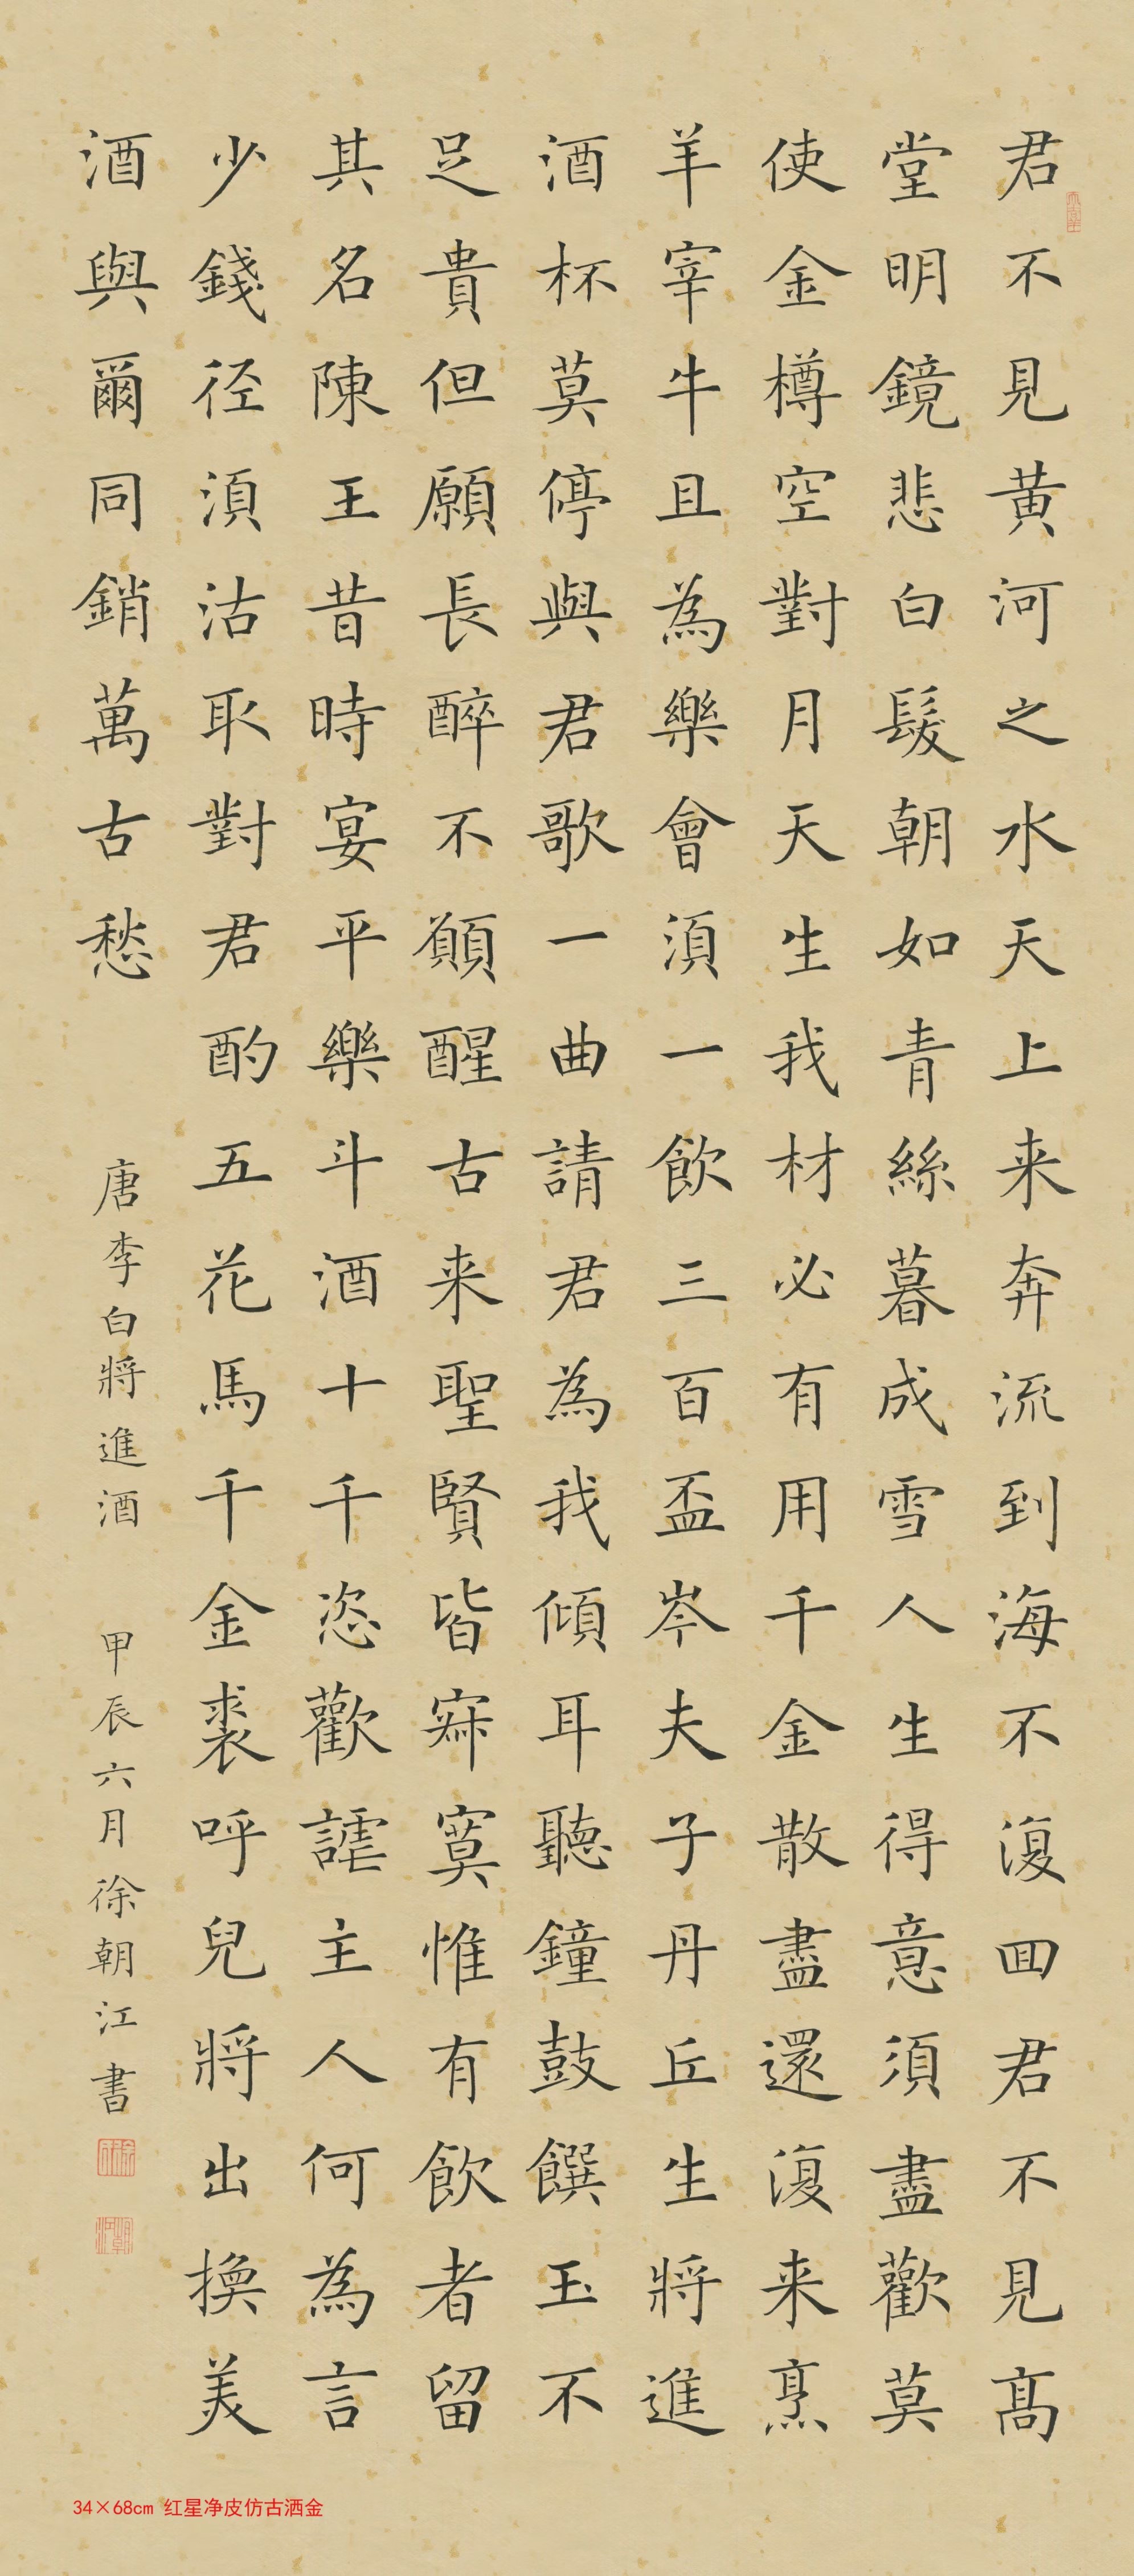 君不見黄河之水天上来奔流到海不復回君不見高
堂明鏡悲白髮朝如青絲暮成雪人生得意須盡歡莫
使金樽空對月天生我材必有用千金散盡還復来烹
羊宰牛且為樂會須一飲三百盃岑夫子丹丘生將進
酒杯莫停與君歌一曲請君為我傾耳聽鐘鼓饌玉不
足貴但願長醉不願醒古来聖賢皆寂寞惟有飲者留
其名陳王昔時宴平樂斗酒十千恣歡謔主人何為言
少錢径須沽取對君酌五花馬千金裘呼兒將出換美
酒與爾同銷萬古愁
唐李白將進酒
甲辰六月徐朝江書
34×68cm 红星净皮仿古洒金